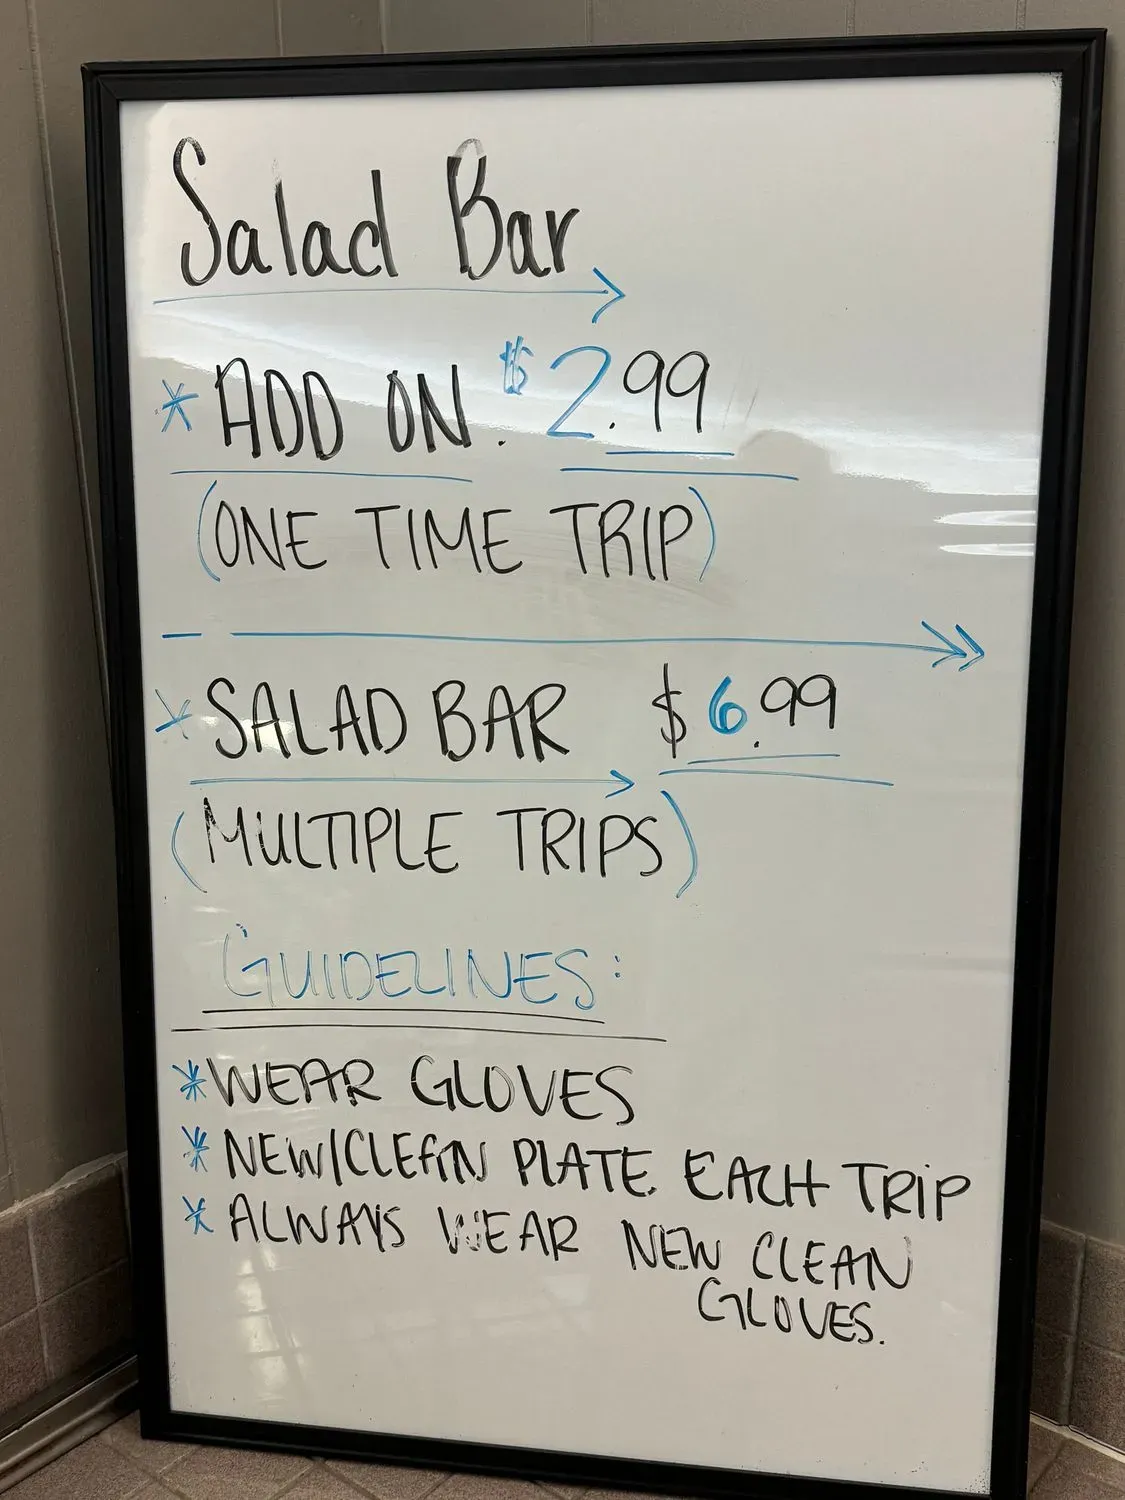 Salad Bar
* ADD ON. $2.99
(ONE TIME TRIP)
* SALAD BAR $6.99
(MULTIPLE TRIPS)
GUIDELINES:
* WEAR GLOVES
* NEW/CLEAN PLATE. EACH TRIP
* ALWAYS WEAR NEW CLEAN
GLOVES.